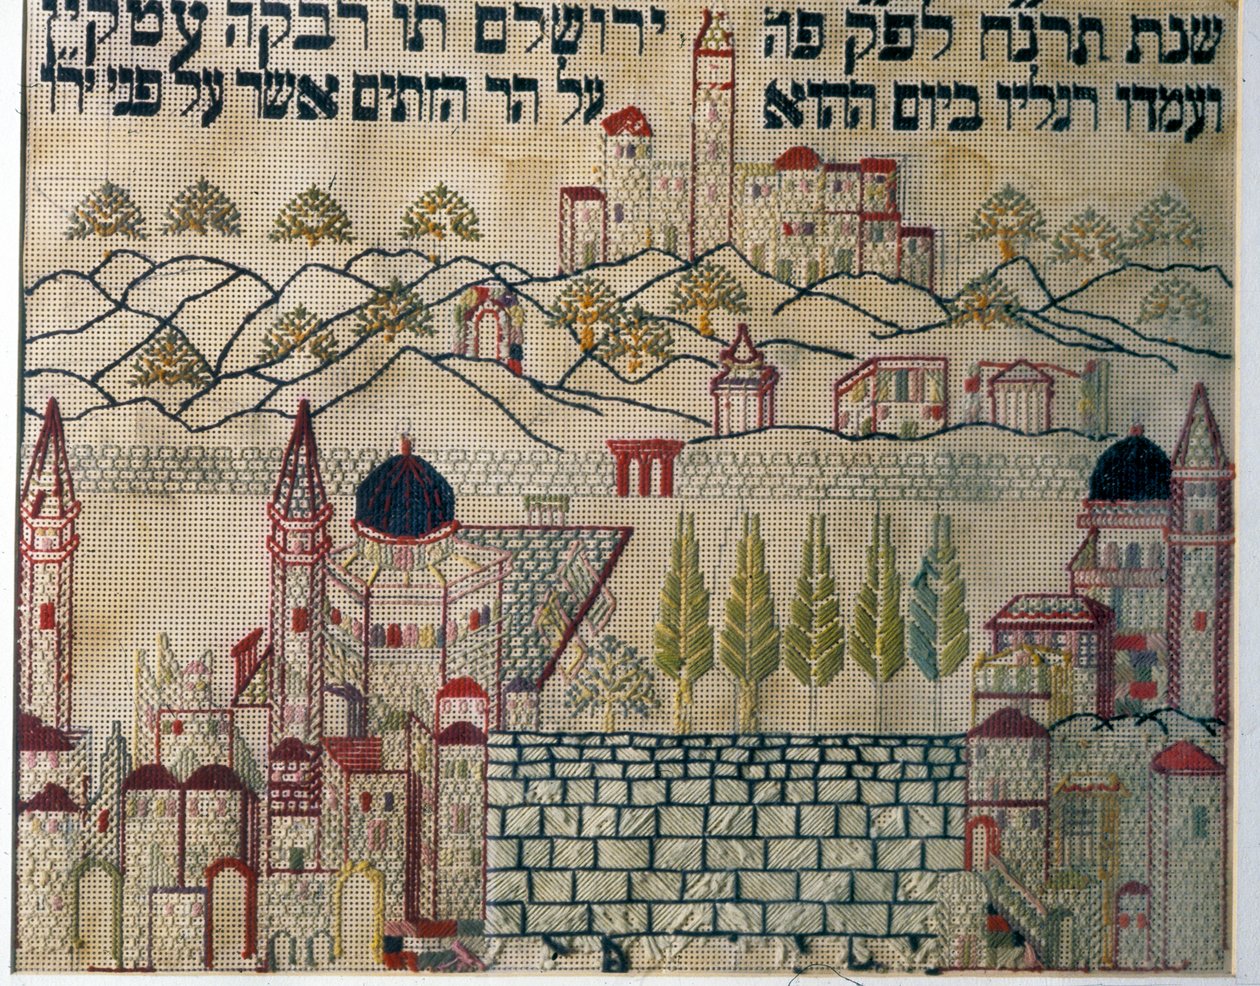 שנת תרנ״ח לפ״ק פה ירושלם תו רבקה עטקין
ועמדו רגליו ביום ההוא על הר הזתים אשר על פני ירו